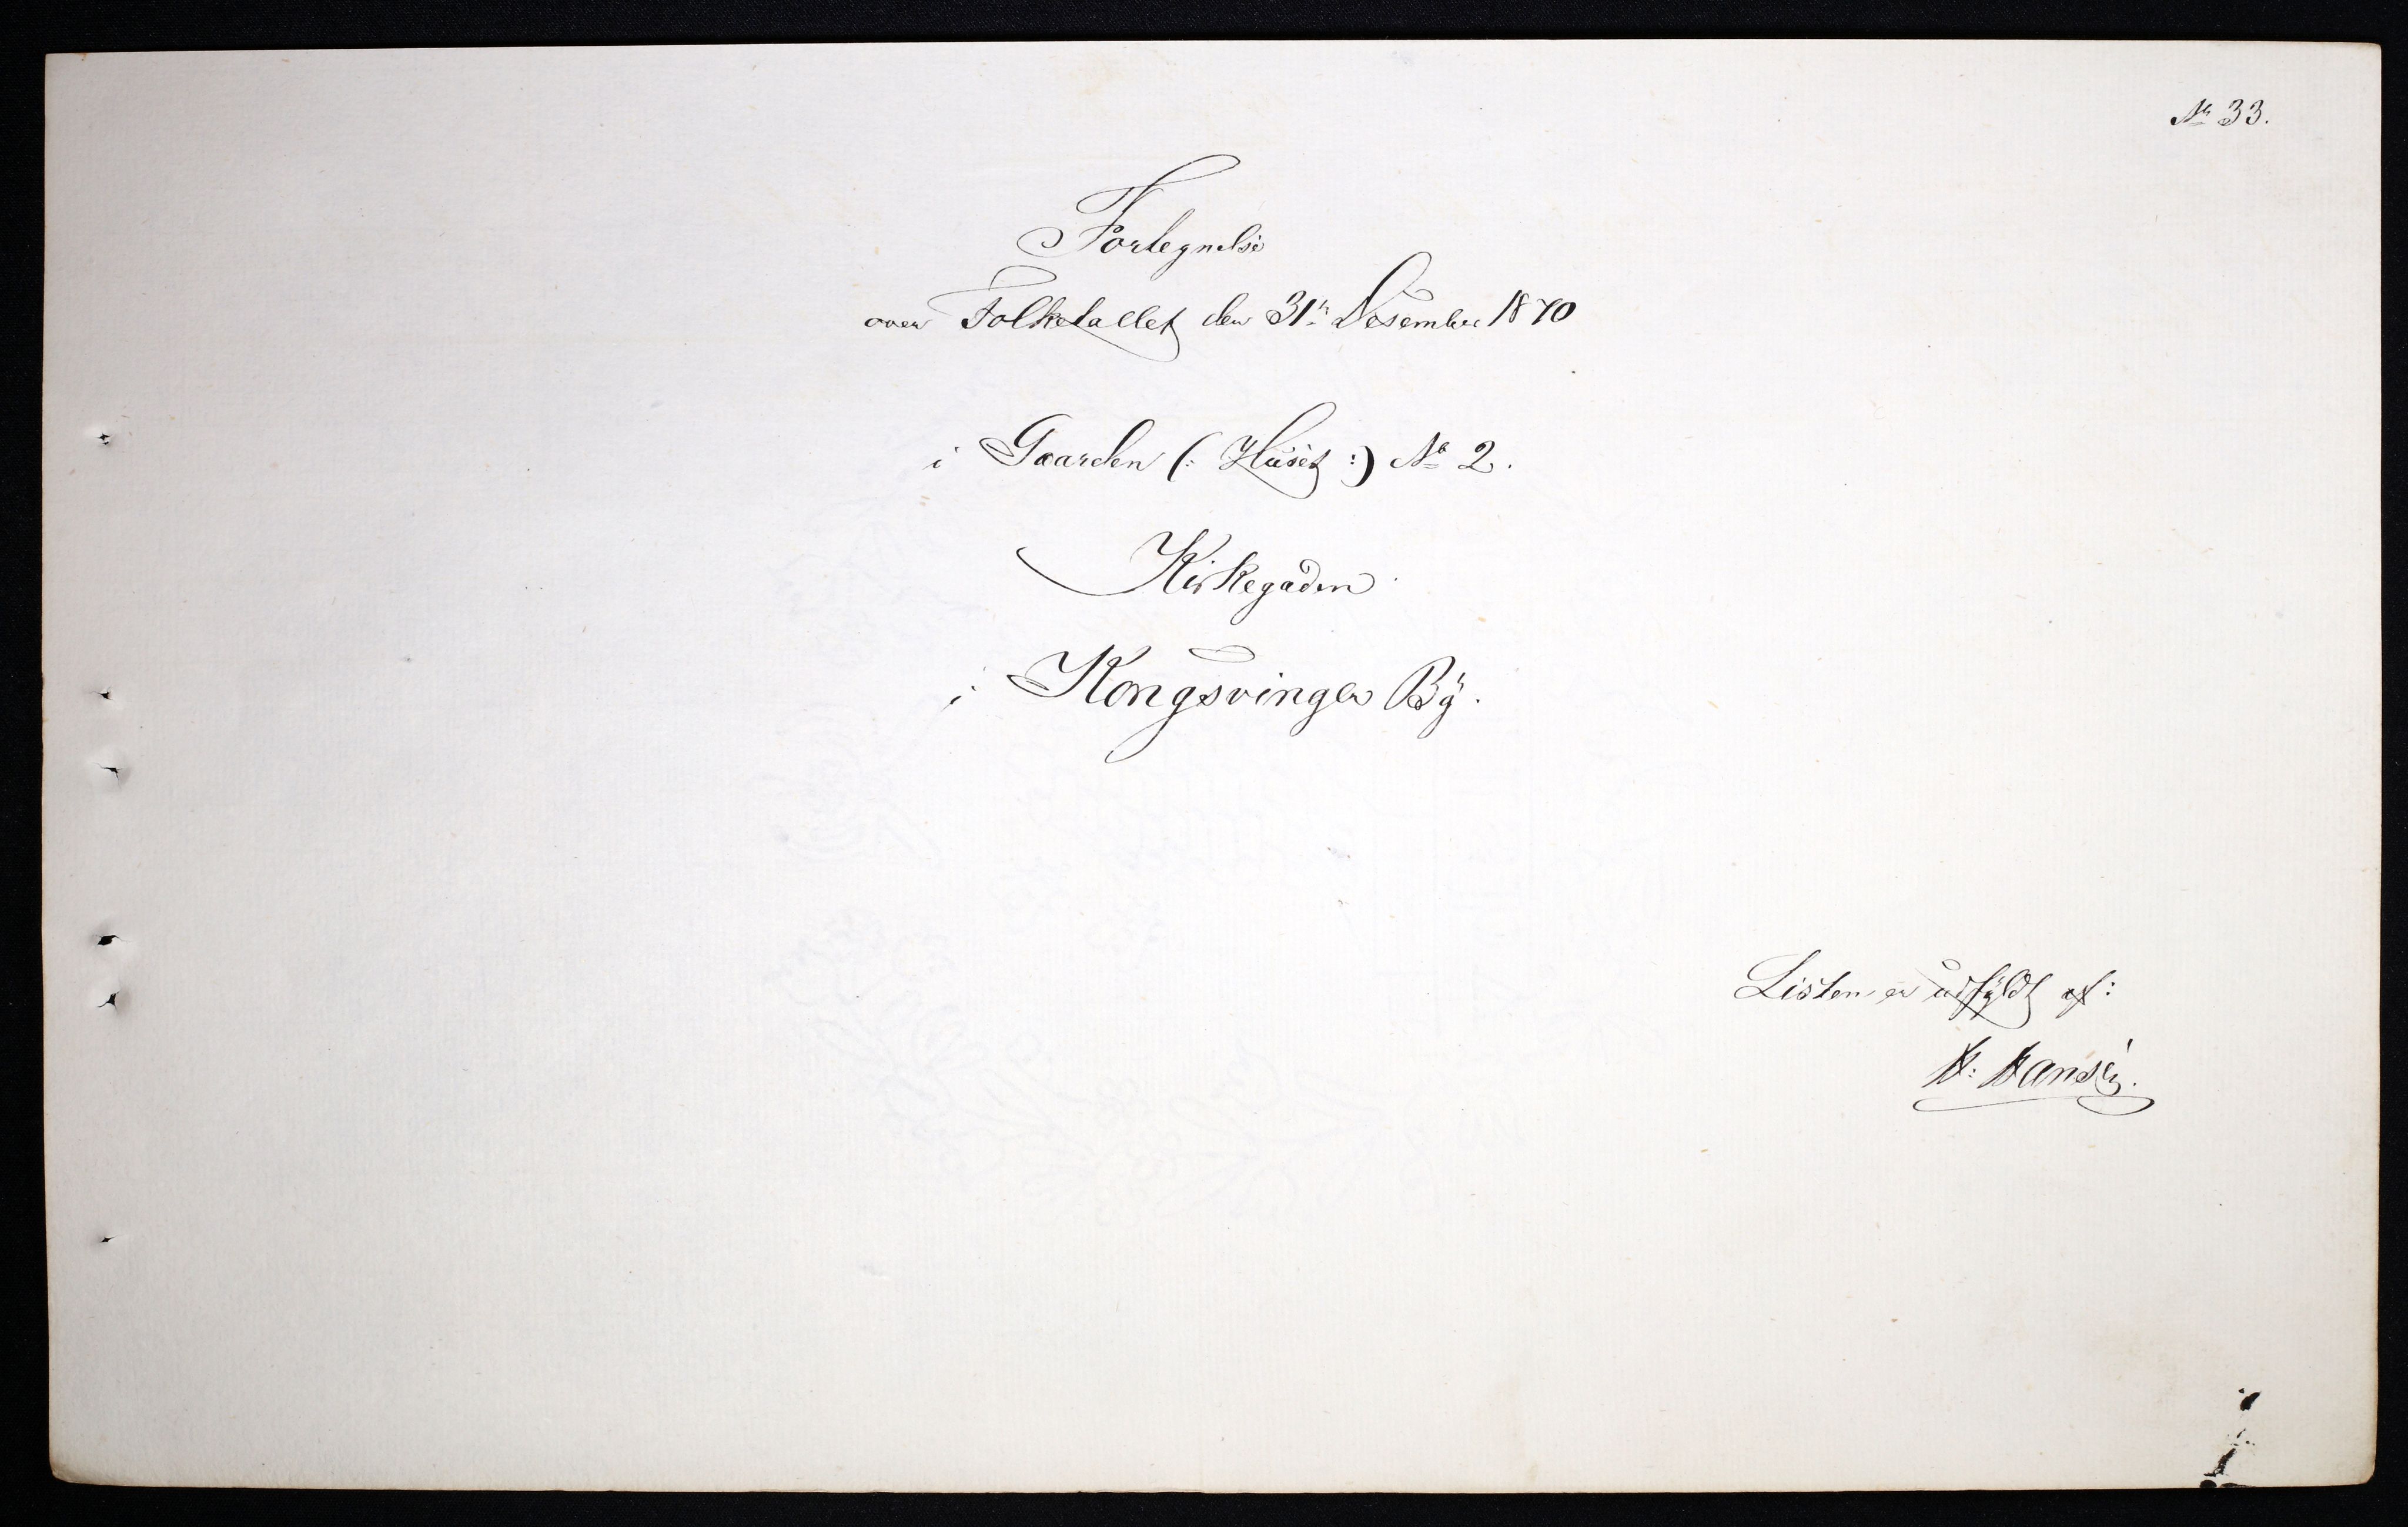 No 33.
Fortegnelse
over Folketallet den 31te Desember 1870
i Gaarden (: Huset :) No 2.
Kirkegaden
i Kongsvinger By.
Listen er udfyldt af:
H: Hansen.